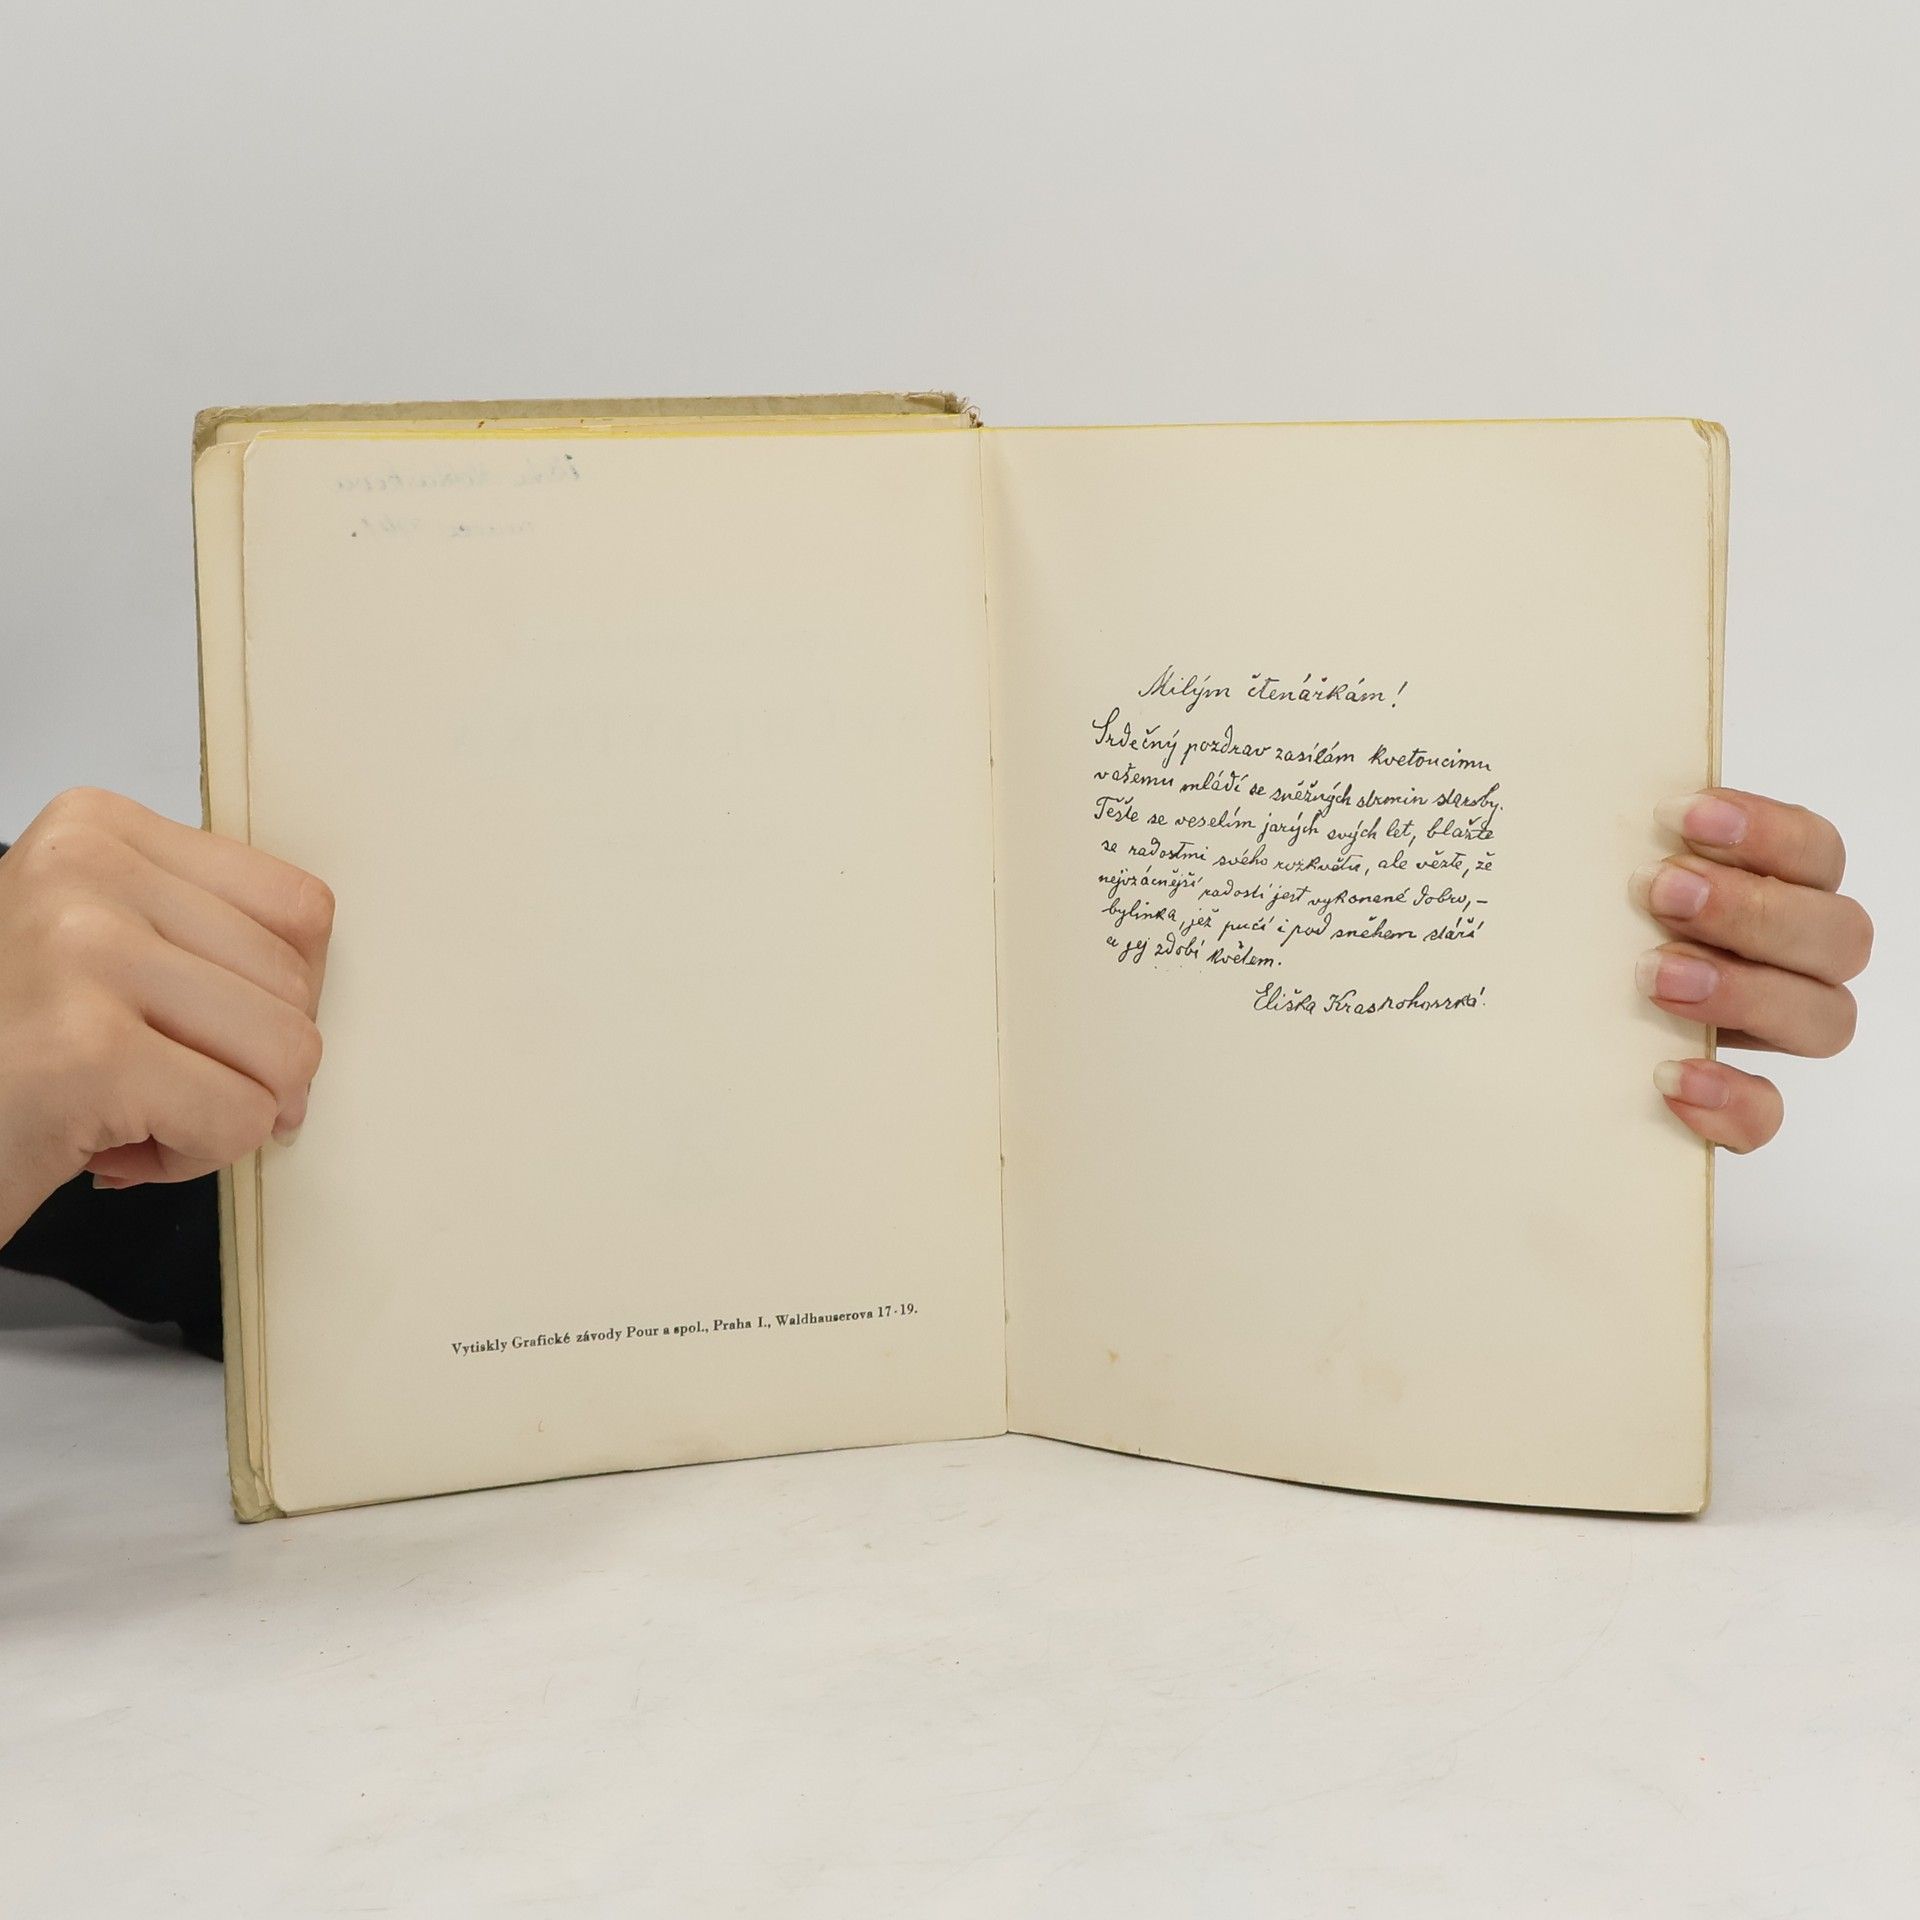 Vytiskly Grafické závody Pour a spol., Praha I., Waldhauserova 17-19.
Milým čtenářkám!
Srdečný pozdrav zasílám kvetoucímu
vašemu mládí se sněžných strmin staroby.
Těšte se veselím jarých svých let, blažte
se radostmi svého rozkvětu, ale vězte, že
nejvzácnější radostí jest vykonané dobro, –
bylinka, jež pučí i pod sněhem stáří
a jej zdobí květem.
Eliška Krásnohorská.